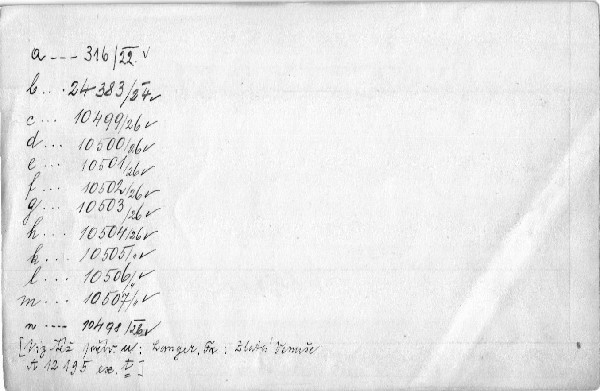 a ---- 316/22. ✓
b ... 24383/24 ✓
c ... 10499/26 ✓
d ... 10500/26 ✓
e ... 10501/26 ✓
f ... 10502/26 ✓
g ... 10503/26 ✓
h ... 10504/26 ✓
k ... 10505/" ✓
l ... 10506/" ✓
m ... 10507/" ✓
n ---- 10491/26 ✓
[Viz též u: Langer, Fr.: Zlatá Venuše
A 12195 ex. ]